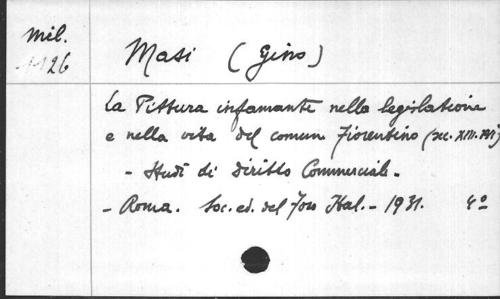 Mil.
1126
Masi (Gino)
La Pittura infamante nella legislazione
e nella vita del comune fiorentino (sec. XIII-XVI)
- Studi di diritto Commerciale -
- Roma. Soc. ed. del Foro Ital. - 1931. 4º